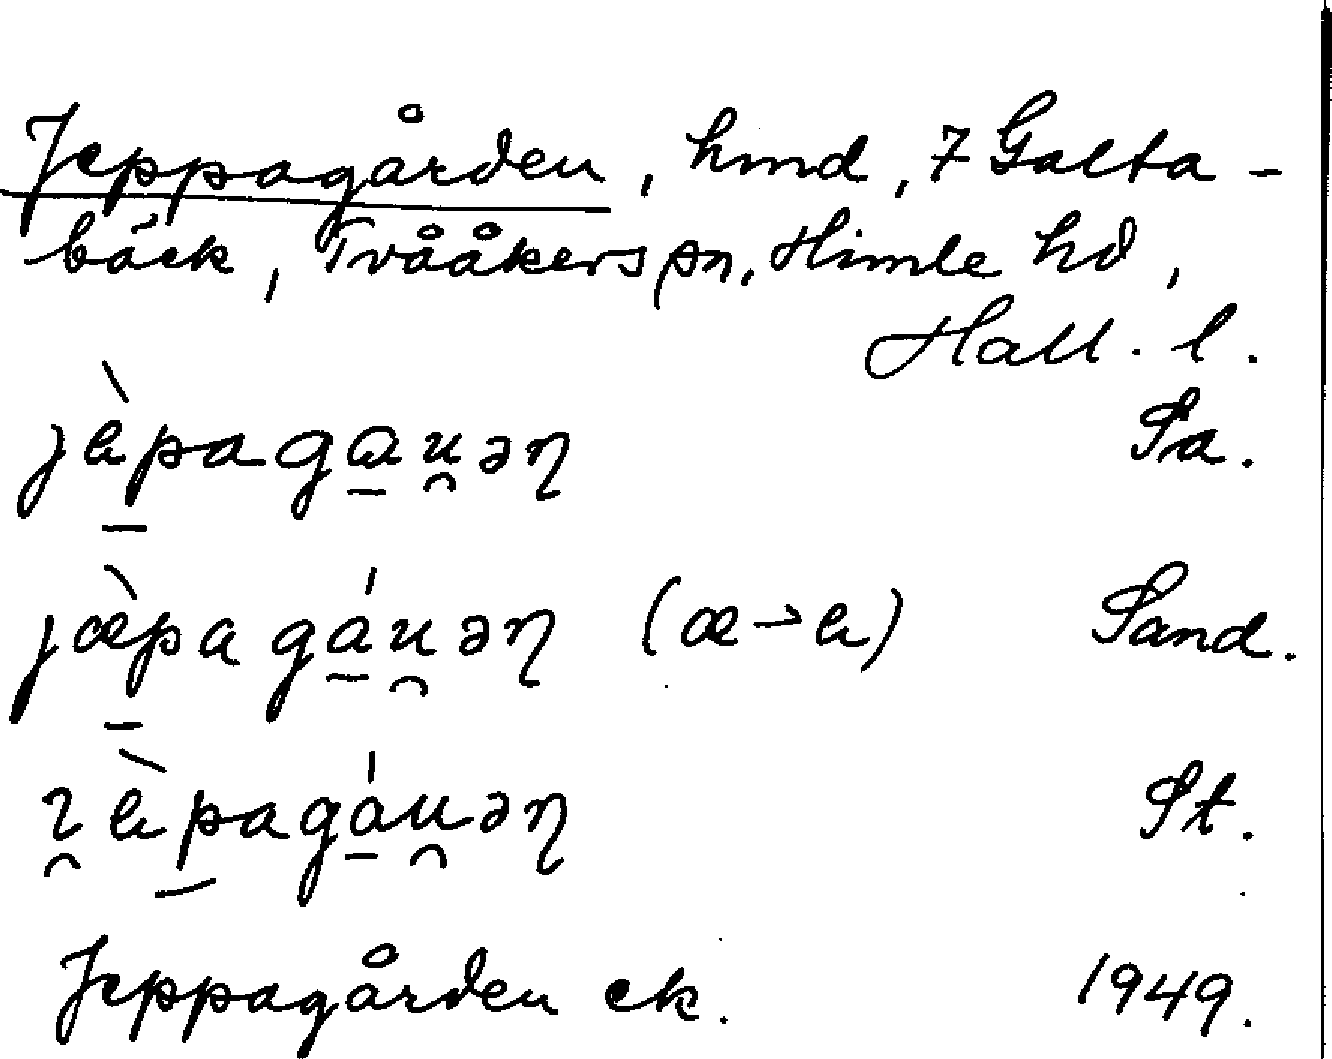 Jeppagården, hmd, 7 Galta-
bäck, Tvååkers sn, Himle hd,
Hall. l.
jèpagau̯əη Sa.
jæ̀pagáu̯əη (æ→e) Sand.
ı̯èpagáu̯əη St.
Jeppagården ek. 1949.